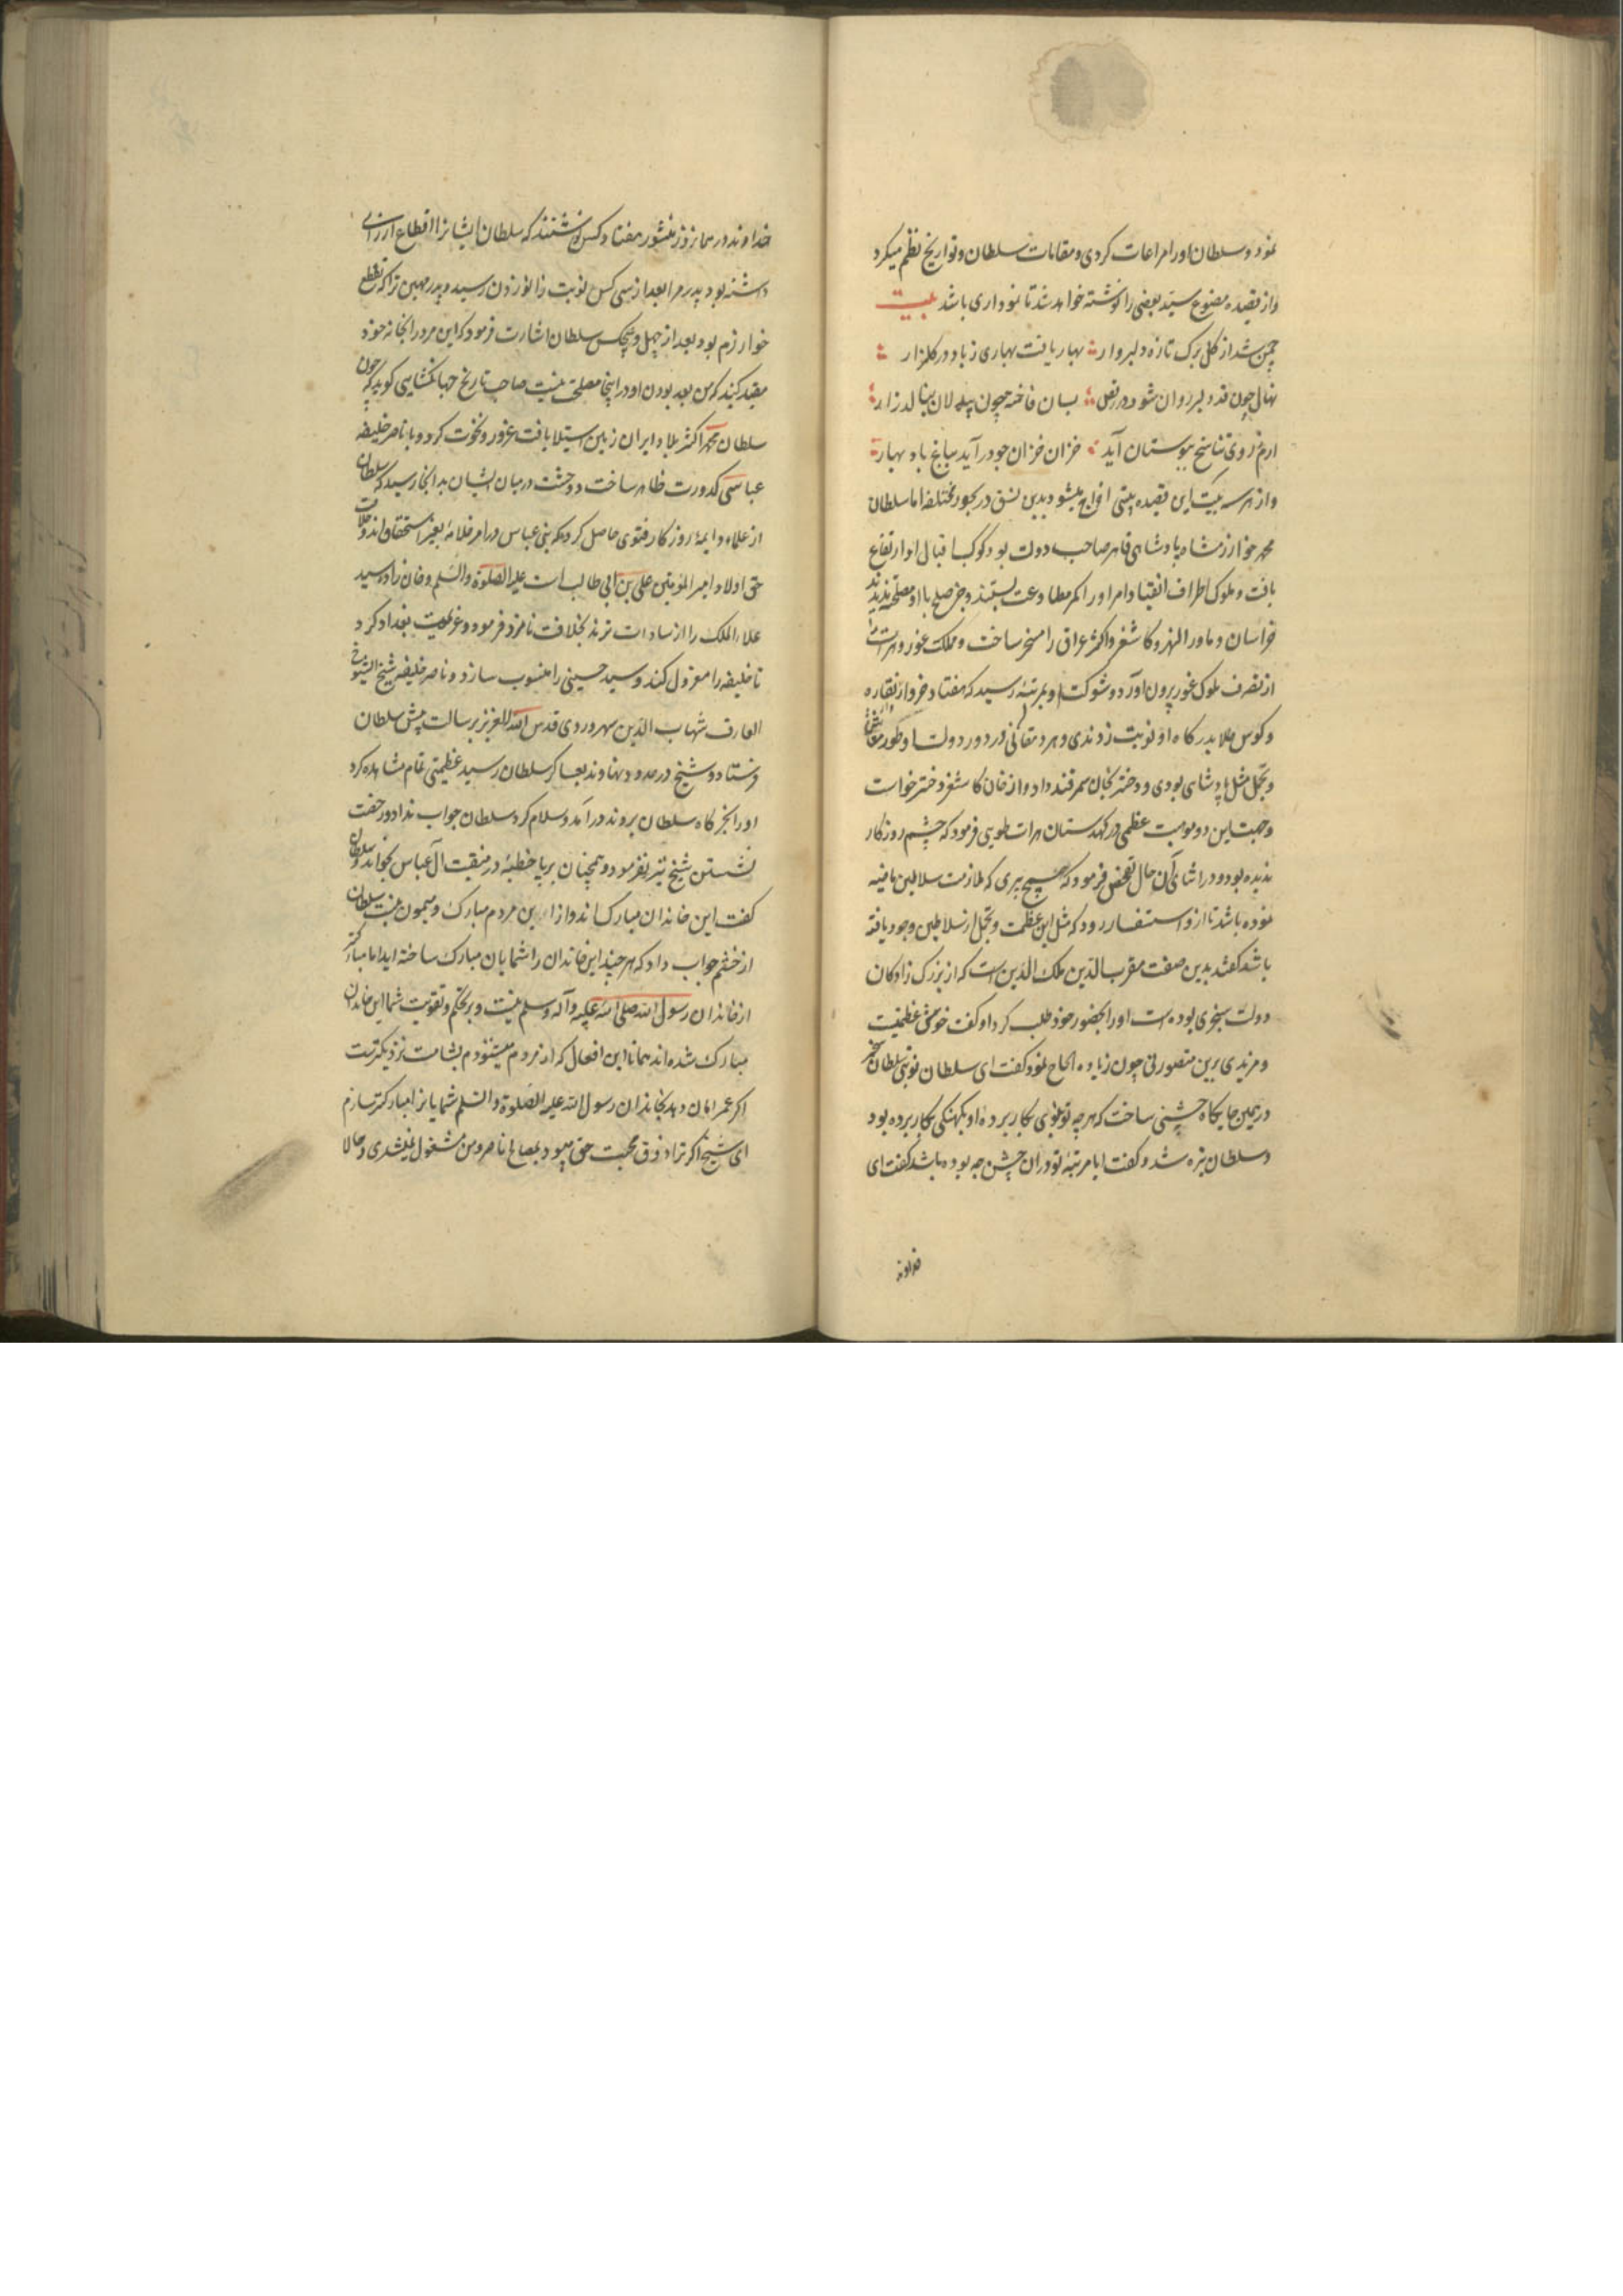 نمود و سلطان او را مراعات کردی و مقامات سلطان و تواریخ نظم میکرد
و از قصیده مصنوع سید بعضی را نوشته خواهد شد تا نموداری باشد بیت
چمن شد از کل برک تازه دلبروار بهار یافت بهاری ز باد در کلزار
نهال چون قد دلبر روان شود در بسان فاخته چون بیدلان بنالد زار
ارم ز روی تناسخ ببوستان آید خزان خزان چو در آید بباغ باد بهار
و از هر سه بیت این قصیده بیتی اخراج میشود بدین نسق در بحور مختلفه اما سلطان
محمد خوارزمشاه پادشاهی قاهر صاحب دولت بود کوکب اقبال او ارتفاع
یافت و ملوک اطراف انقیاد امر او را کمر مطاوعت بستند و جز صلح با او مصلحت ندیدند
خراسان و ماوراالنهر و کاشغر و اکثر عراق را مسخر ساخت و مملکت غور و هرات را
از تصرف ملوک غور بیرون آورد و شوکت او بمرتبهٔ رسید که هفتاد خروار نقاره
و کوس طلا بدرکاه او نوبت زدندی و هر دهقانی در دور دولت او
و تجمل مثل پادشاهی بودی و دختر بخان سمرقند داد و از خان کاشغر دختر خواست
و جهت این دو موهبت عظمی در کهدستان هرات طویی فرمود که چشم روزکار
ندیده بود و در اثنای آن حال تفحص فرمود که هیچ پیری که ملازمت سلاطین ماضیه
نموده باشد تا ازو استفسار رود که مثل این عظمت و تجمل از سلاطین وجود یافته
باشد کفتند بدین صفت مقرب الدین ملک الدین است که از بزرک زادکان
دولت سنجری بوده است او را بحضور خود طلب کرد او کفت خوش عظیمت
و مزیدی برین متصور نی چون زیاده الحاح نمود کفت ای سلطان نوبتی سلطان سنجر
در همین جایکاه جشنی ساخت که هر چه تو بکار برده او بکار برده بود
و سلطان تیره شد و کفت ایا مرتبهٔ تو در ان جشن چه بوده باشد کفت ای
خداوند
خداوند در همانروز منشور هفتاد کس نوشتند که سلطان ایشانرا اقطاع ارزانی
داشته بود پدرم را بعد از سی کس نوبت زانو زدن رسید و پدر مهین ترا که مقطع
خوارزم بود بعد از چهل و پنجکس سلطان اشارت فرمود که این مرد را بخانه خود
مقید کنید که من بعد بودن او در اینجا مصلحت نیست صاحب تاریخ جهانکشایی کوید که چون
سلطان محمد اکثر بلاد ایران زمین استیلا یافت غرور و نخوت کرد و با ناصر خلیفه
عباسی کدورت ظاهر ساخت و وحشت در میان ایشان بدانجا رسید که سلطان
از علما و ایمهٔ روزکار فتوی حاصل کرد که بنی عباس در امر خلافت بغیر استحقاق اند و خلافت
حق اولاد امیر المومنین علی بن ابی طالب است علیه الصلوة والسلم و خان زاده سید
علاءالملک را از سادات ترمذ بخلافت نامزد فرمود و عزیمت بغداد کرد
تا خلیفه را معزول کند و سید حسینی را منسوب سازد و ناصر خلیفه شیخ الشیوخ
العارف شهاب الدین سهروردی قدس الله للعزیز برسالت پیش سلطان
فرستاد و شیخ در حدود نهاوند بعساکر سلطان رسید عظمتی تمام مشاهده کرد
او را بخرکاه سلطان بردند در آمد و سلام کرد سلطان جواب نداد و رخصت
نشستن شیخ نیز نفرمود و همچنان بر پا خطبهٔ در منقبت آل عباس بخواند و سلطان
کفت این خاندان مبارک اند و ازار این مردم مبارک و میمون نیست سلطان
از خشم جواب داد که هر چند این خاندان را شمایان مبارک ساخته اید اما مبارکتر
از خاندان رسول الله صلی الله علیه وآله وسلم نیست و بر تحکم و تقویت شما این خاندان
مبارک شده اند همانا این افعال که از مردم میشنودم بشامت نزدیکتر است
اکر عمر امان دهد بخاندان رسول الله علیه الصلوة والسلم شمایانرا مبارکتر سازم
ای شیخ اکر ترا ذوق محبت حق میبود بمصالح ناصر و من مشغول نمیشدی و حالا